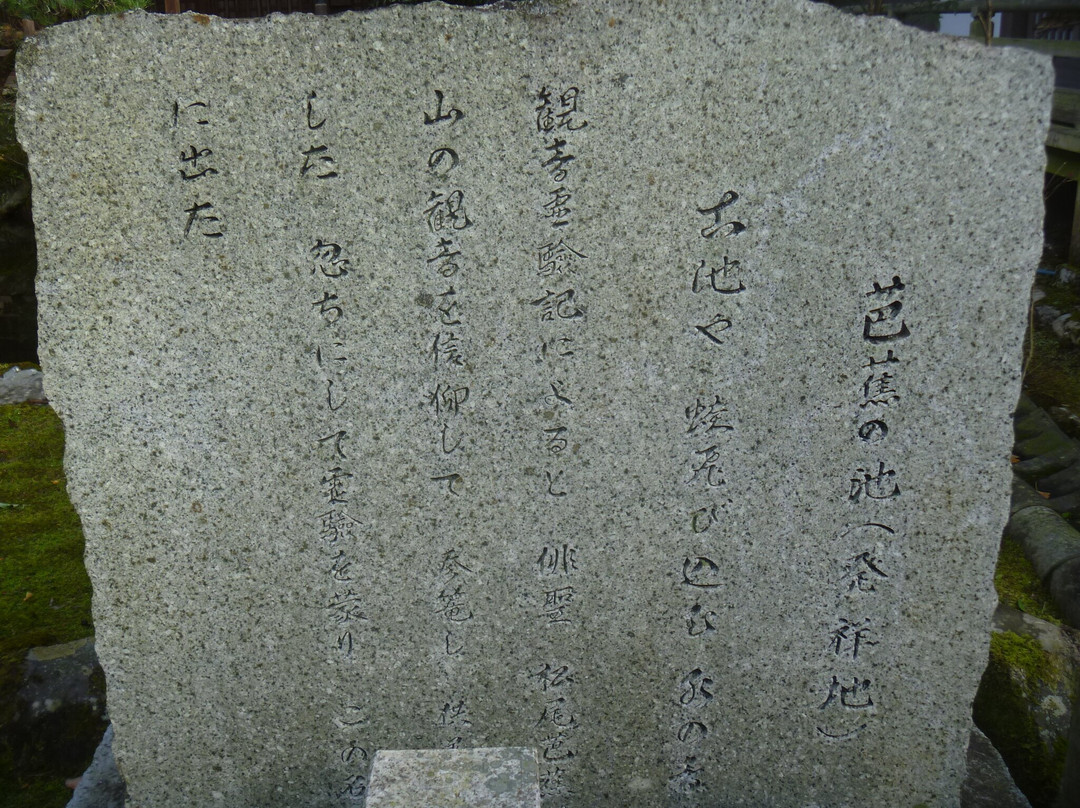 芭蕉の池(発祥地)
古池や 蛙飛び込む 水の音
観音霊験記によると 俳聖 松尾芭蕉
山の観音を信仰して 参篭し 供
した 忽ちにして霊験を蒙り この名
に出た